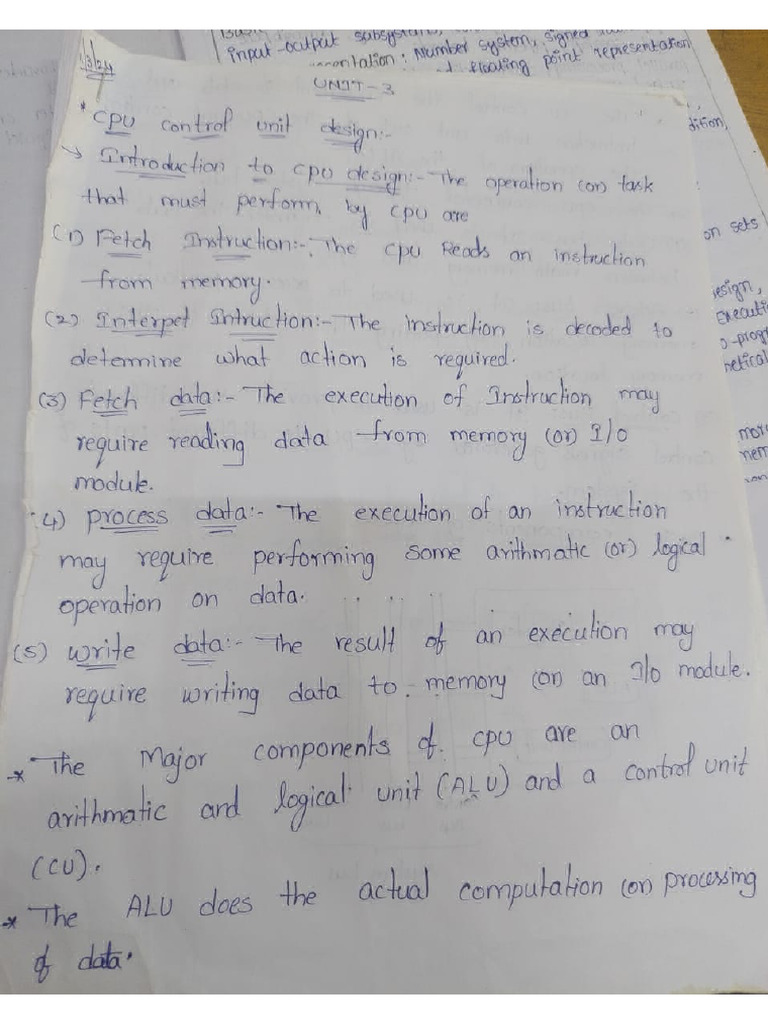 input-output subsystem,
Number system, signed
floating point representation
1/3/24
UNIT-3
* CPU control unit design:-
→ Introduction to CPU design:- The operation (or) task
that must perform, by CPU are
(1) Fetch Instruction:- The CPU Reads an instruction
from memory.
(2) Interpet Intruction:- The instruction is decoded to
determine what action is required.
(3) Fetch data:- The execution of Instruction may
require reading data from memory (or) I/O
module.
4) process data:- The execution of an instruction
may require performing some arithmatic (or) logical
operation on data.
(5) write data:- The result of an execution may
require writing data to memory (or) an I/O module.
* The Major components of CPU are an
arithmatic and logical unit (ALU) and a control unit
(CU).
* The ALU does the actual computation (or) processing
of data.
on sets